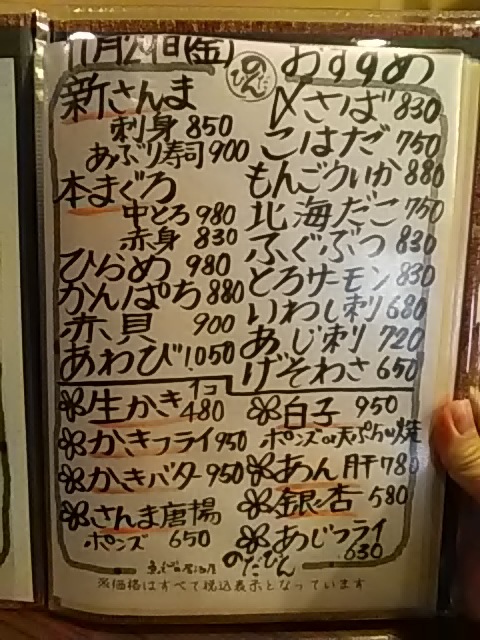 11月29日(金)
のんだびん
おすすめ
新さんま
刺身 850
あぶり寿司 900
本まぐろ
中とろ 980
赤身 830
ひらめ 980
かんぱち 880
赤貝 900
あわび 1050
〆さば 830
こはだ 750
もんごういか 880
北海だこ 750
ふぐぶつ 830
とろサーモン 830
いわし刺 680
あじ刺 720
げそわさ 650
生かき 1コ 480
かきフライ 950
かきバター 950
さんま唐揚
ポンズ 650
白子 950
ポンズor天ぷらor焼
あん肝 780
銀杏 580
あじフライ
630
のだぴん
※価格はすべて税込表示となっています